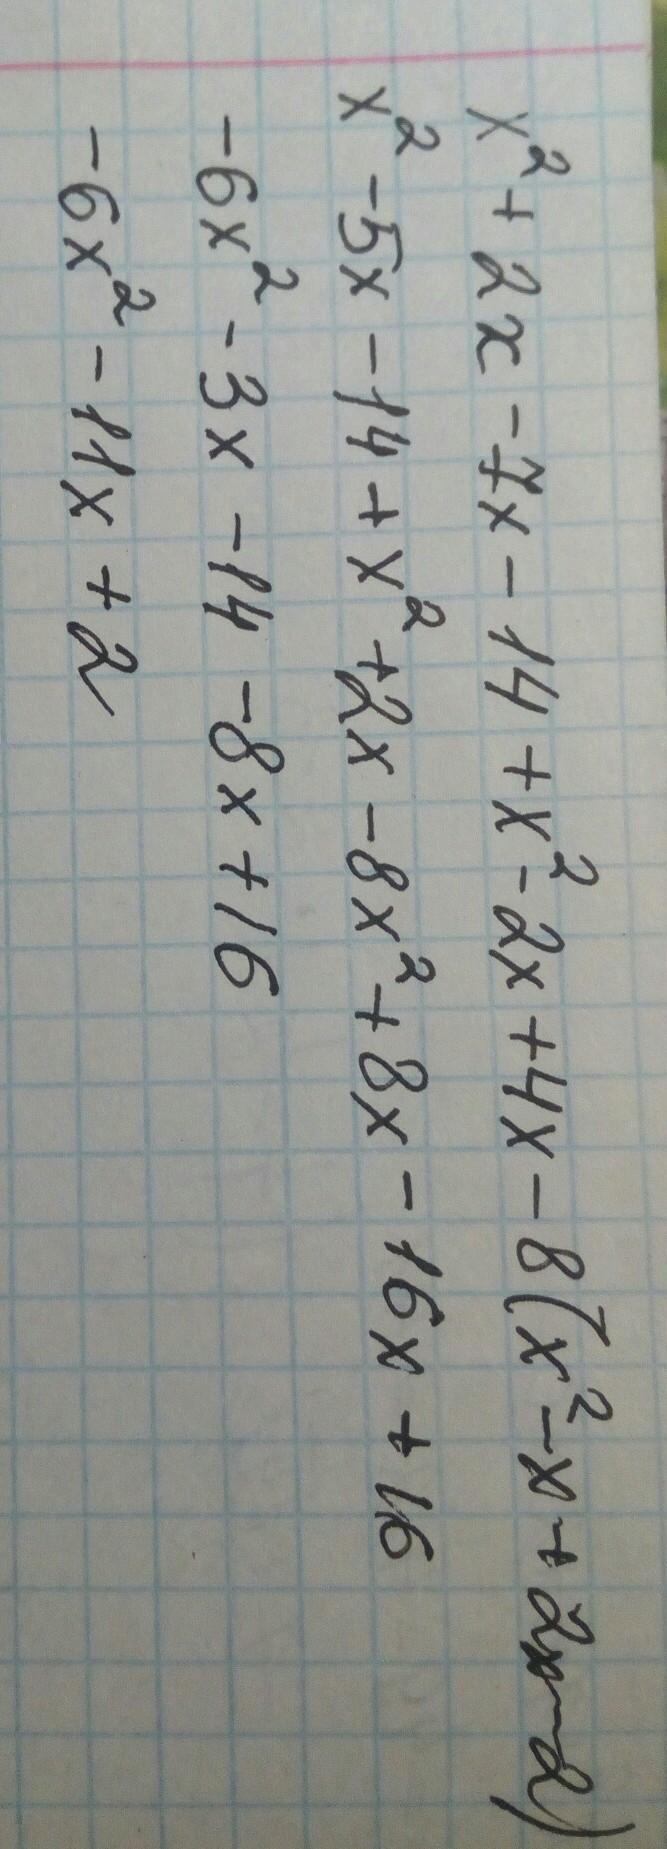 x² + 2x - 7x - 14 + x² - 2x + 4x - 8(x² - x + 2x - 2)
x² - 5x - 14 + x² + 2x - 8x² + 8x - 16x + 16
-6x² - 3x - 14 - 8x + 16
-6x² - 11x + 2